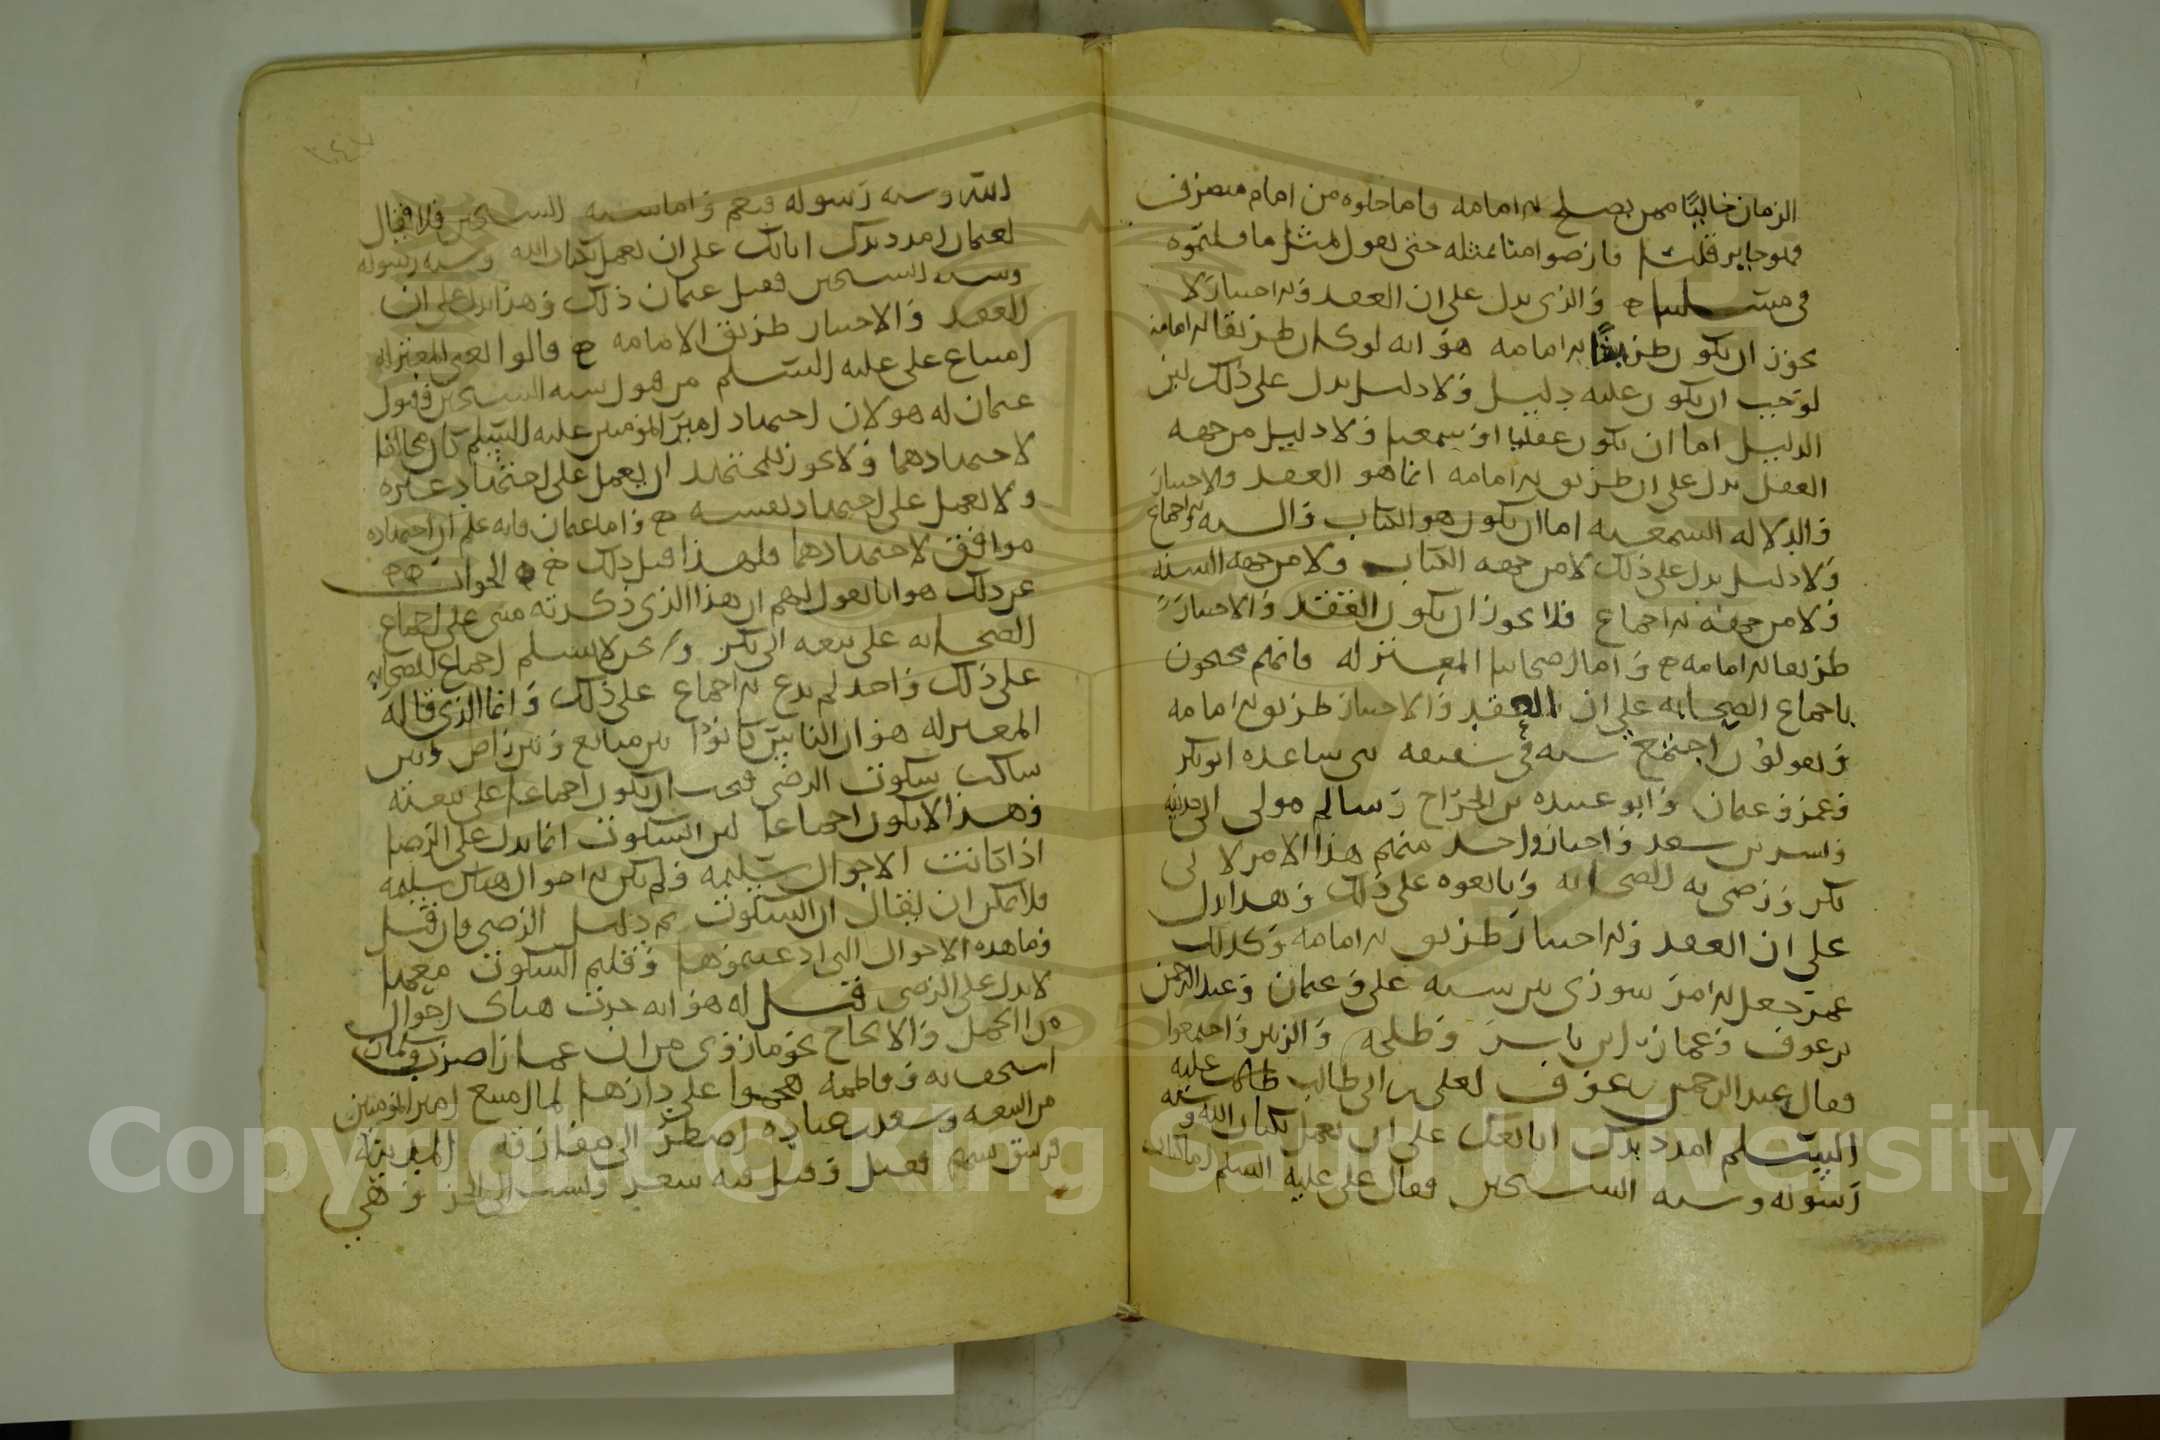 الزمان خاليًا ممن يصلح للامامه فاما خلوه من امام متصرف
فهو جايز قلنا فارضوا منا بمثله حتى نقول مثل ما قلتموه
في مسلنا ه والذي يدل على ان العقد والاختيار لا
يجوز ان يكون طريقًا للامامه هو انه لو كان طريقا للامامه
لوجب ان يكون عليه دليل ولا دليل يدل على ذلك لان
الدليل اما ان يكون عقليا او سمعيا ولا دليل من جهه
العقل يدل على ان طريق الامامه انما هو العقد والاختيار
والدلاله السمعيه اما ان يكون هو الكتاب والسنه والاجماع
ولا دليل يدل على ذلك لا من جهه الكتاب ولا من جهه السنه
ولا من جهه الاجماع فلا يجوز ان يكون العقد والاختيار
طريقا للامامه ه واما اصحابنا المعتزله فانهم يحتجون
باجماع الصحابه على ان العقد والاختيار طريق الامامه
ويقولون اجتمع سته في سقيفه بني ساعده ابو بكر
وعمر وعثمان وابو عبيده بن الجراح وسالم مولى ابي حذيفه
واسيد بن سعد واختار واحد منهم هذا الامر لابي
بكر ورضي به الصحابه وبايعوه على ذلك وهذا يدل
على ان العقد والاختيار طريق الامامه وكذلك
عمر جعل الامر شورى بين سته علي وعثمان وعبد الرحمن
بن عوف وعمار بن ياسر وطلحه والزبير واجتمعوا
فقال عبد الرحمن بن عوف لعلي بن ابي طالب عليه
السلم امدد يدك ابايعك على ان تعمل بكتاب الله وسنه
رسوله وسنه الشيخين فقال علي عليه السلم اما كتاب
الله وسنه رسوله فنعم واما سنه الشيخين فلا فقال
لعثمان امدد يدك ابايعك على ان تعمل بكتاب الله وسنه رسوله
وسنه الشيخين فقبل عثمان ذلك وهذا يدل على ان
العقد والاختيار طريق الامامه ه قالوا اعني المعتزله
امتناع علي عليه السلم من قبول سنه الشيخين وقبول
عثمان له هو لان اجتهاد امير المؤمنين عليه السلم كان مخالفا
لاجتهادهما ولا يجوز للمجتهد ان يعمل على اجتهاد غيره
ولا يعمل على اجتهاد نفسه ه واما عثمان فانه علم ان اجتهاده
موافق لاجتهادهما فلهذا قبل ذلك ه الجواب
عن ذلك هو انا نقول لهم ان هذا الذي ذكرته مبني على اجماع
الصحابه على بيعه ابي بكر ونحن لا نسلم اجماع الصحابه
على ذلك واحد لم يدع الاجماع على ذلك وانما الذي قاله
المعتزله هو ان الناس كانوا بين مبايع وبين راض وبين
ساكت سكوت الرضى فيجب ان يكون اجماعا على بيعته
وهذا لا يكون اجماعا لان السكوت انما يدل على الرضا
اذا كانت الاحوال سليمه ولم يكن الاحوال هناك سليمه
فلا يمكن ان يقال ان السكوت ثم دليل الرضى فان قيل
وما هذه الاحوال التي ادعيتموها وقلتم السكوت معها
لا يدل على الرضى قيل له هو انه جرت هناك احوال
من الحمل والالحاح نحو ما روي من ان عمارا ضرب وسلمان
استخف به وفاطمه هجموا على دارها لما امتنع امير المؤمنين
من البيعه وسعد بن عباده اضطر الى مفارقه المدينه
فقتل وقيل فيه سعد ونسب الى الجن وهي